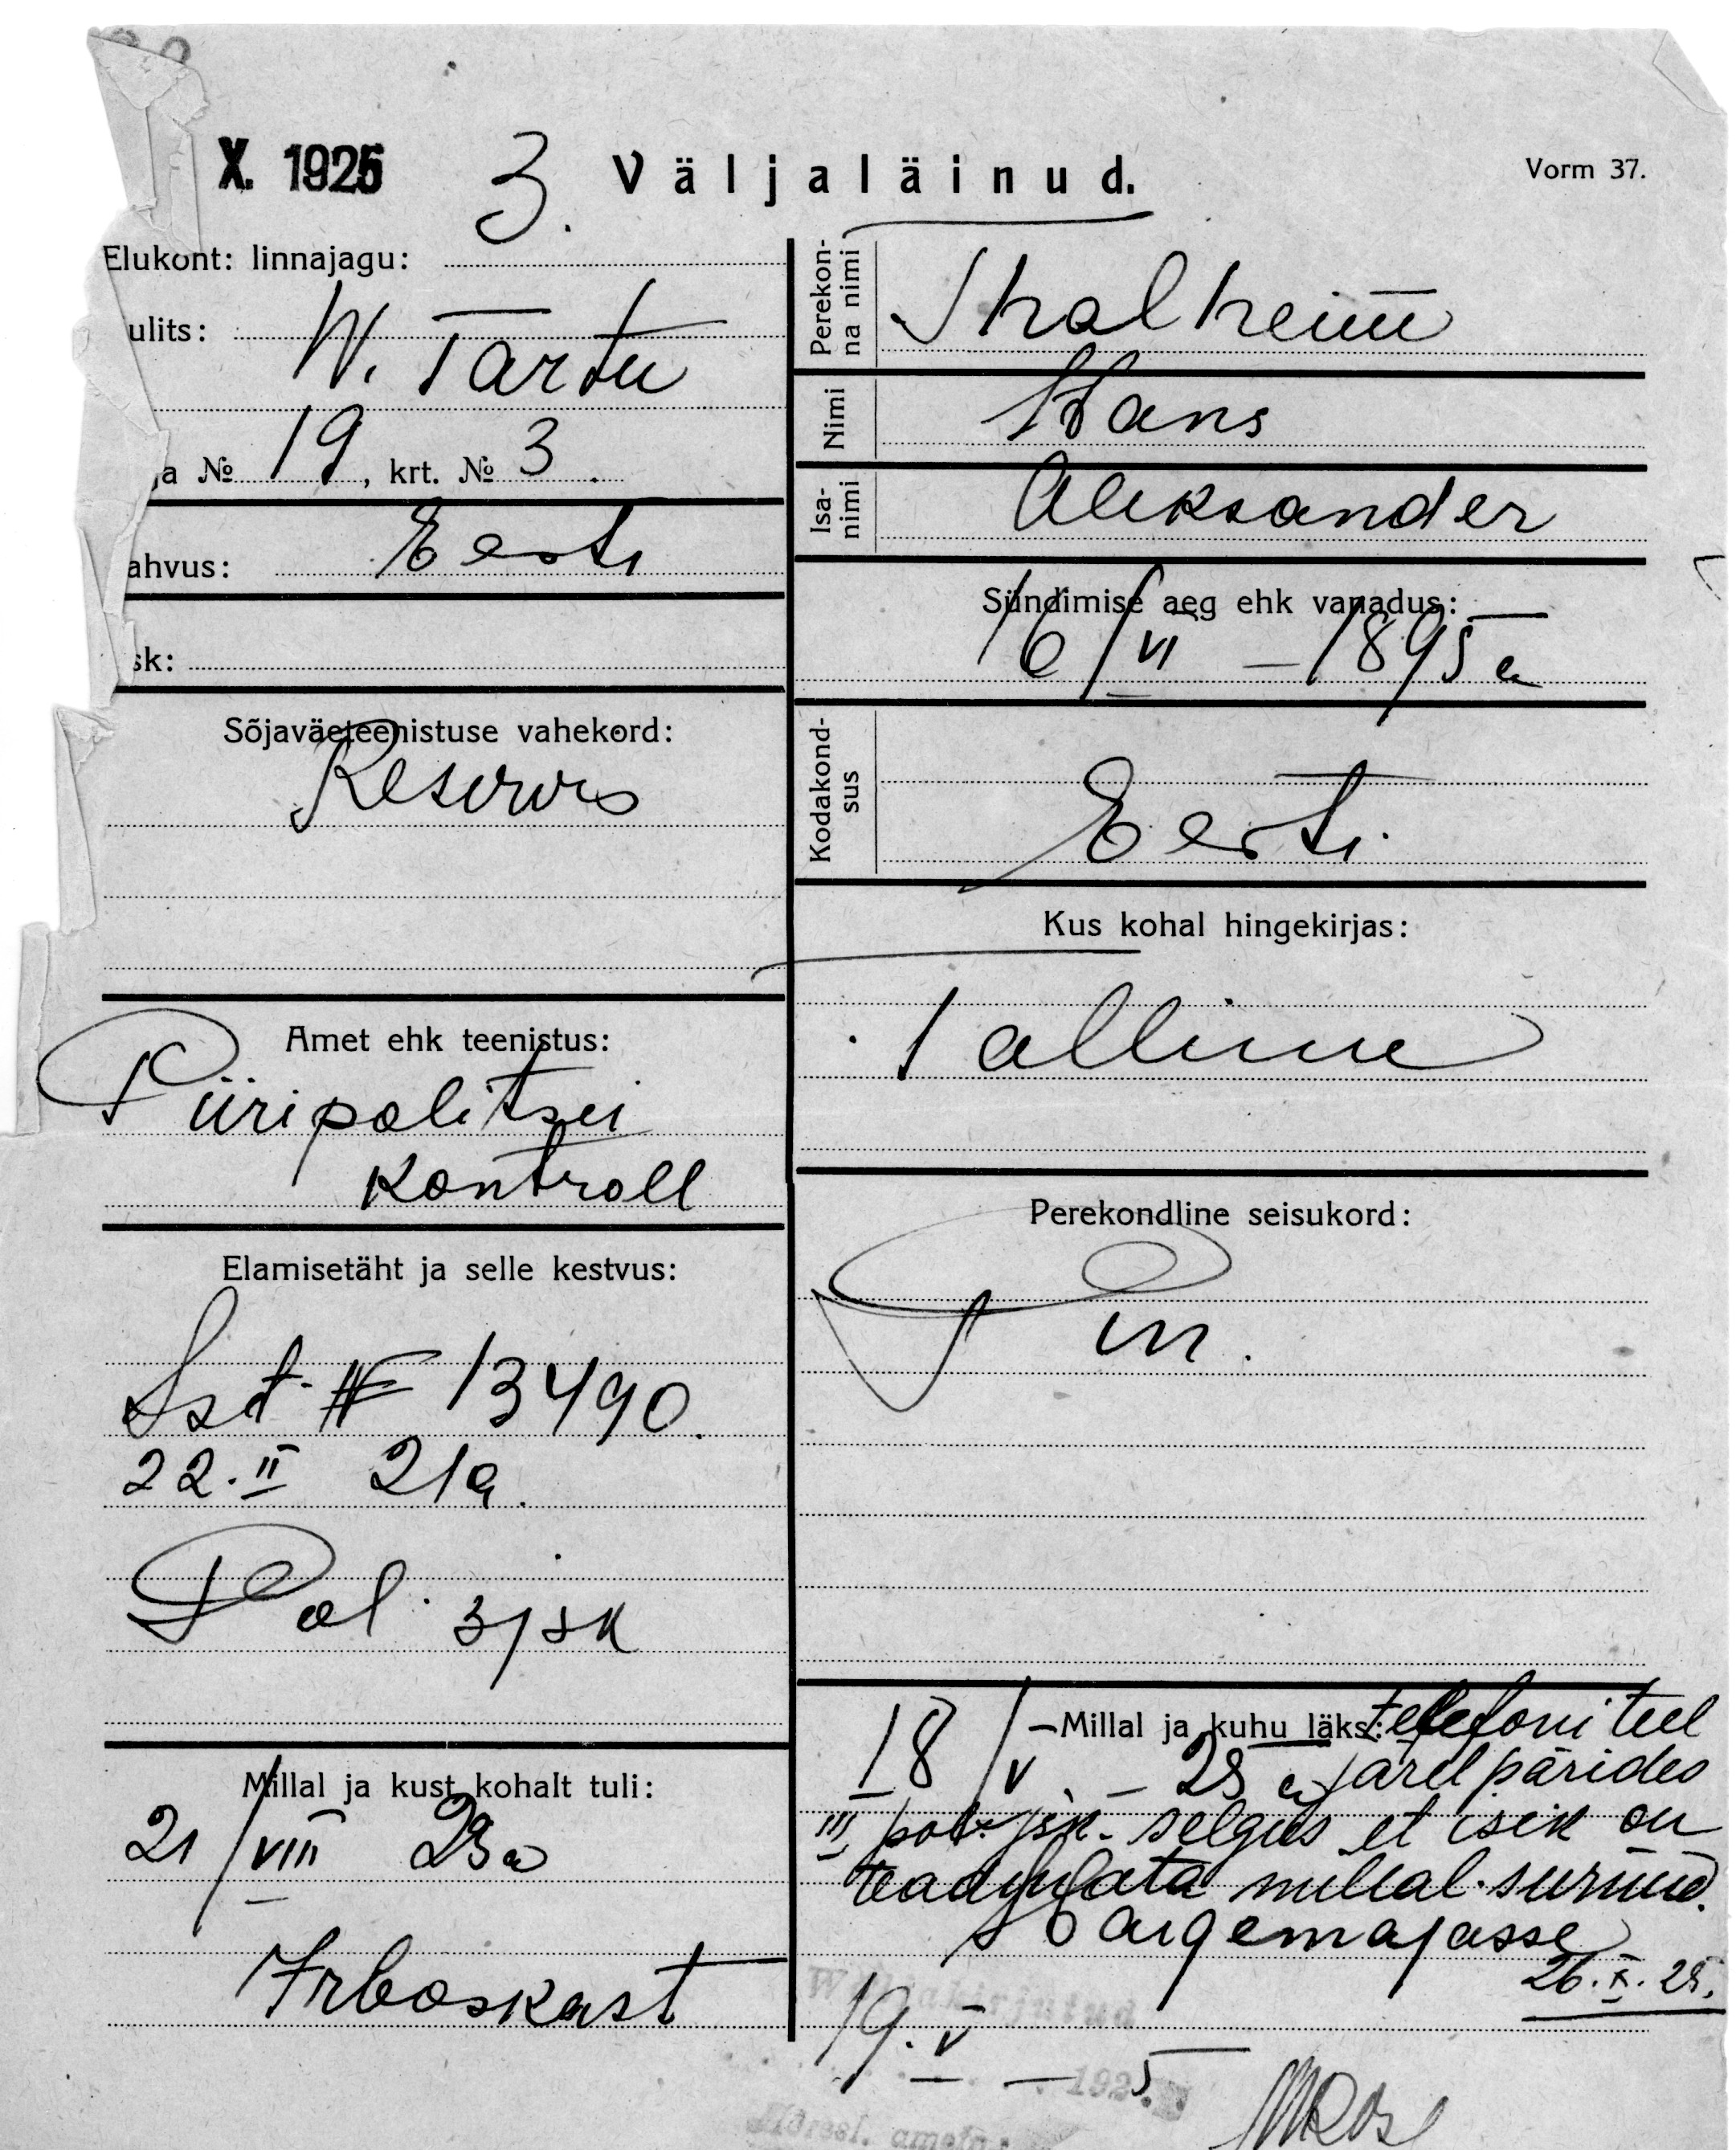 X. 1925
3.
Väljaläinud.
Vorm 37.
Elukoht: linnajagu:
ulits: W. Tartu
ja № 19, krt. № 3.
ahvus: Eesti
sk:
Sõjaväeteenistuse vahekord:
Reservis
Amet ehk teenistus:
Piiripolitsei
Kontroll
Elamisetäht ja selle kestvus:
Ist № 13490.
22.II 21a.
Pol. 3 jsk
Millal ja kust kohalt tuli:
21/VIII 23a
Irboskast
Perekonna nimi Thalheim
Nimi Hans
Isanimi Aleksander
Sündimise aeg ehk vanadus:
16/VI – 1895 a
Kodakondsus Eesti
Kus kohal hingekirjas:
Tallinn
Perekondline seisukord:
Millal ja kuhu läks: telefoni teel
18/V – 25 a järel pärides
III pol. jsk. selgus et isik on
teadmata millal surnud.
Haigemajasse
26.X.25.
Väljakirjutud
19.V – 1925